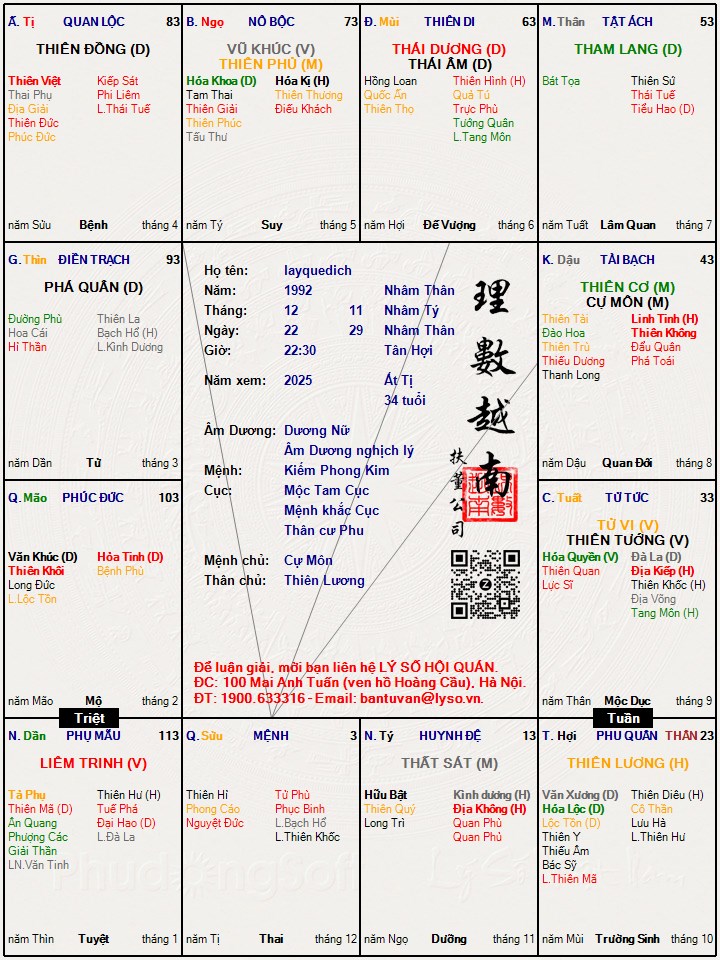 Ấ. Tị QUAN LỘC 83
THIÊN ĐỒNG (D)
Thiên Việt Kiếp Sát
Thai Phụ Phi Liêm
Địa Giải L.Thái Tuế
Thiên Đức
Phúc Đức
năm Sửu Bệnh tháng 4
B. Ngọ NÔ BỘC 73
VŨ KHÚC (V)
THIÊN PHỦ (M)
Hóa Khoa (D) Hóa Kị (H)
Tam Thai Thiên Thương
Thiên Giải Điếu Khách
Thiên Phúc
Tấu Thư
năm Tý Suy tháng 5
Đ. Mùi THIÊN DI 63
THÁI DƯƠNG (D)
THÁI ÂM (D)
Hồng Loan Thiên Hình (H)
Quốc Ấn Quả Tú
Thiên Thọ Trực Phù
Tướng Quân
L.Tang Môn
năm Hợi Đế Vượng tháng 6
M. Thân TẬT ÁCH 53
THAM LANG (D)
Bát Tọa Thiên Sứ
Thái Tuế
Tiểu Hao (D)
năm Tuất Lâm Quan tháng 7
G. Thìn ĐIỀN TRẠCH 93
PHÁ QUÂN (D)
Đường Phù Thiên La
Hoa Cái Bạch Hổ (H)
Hỉ Thần L.Kình Dương
năm Dần Tử tháng 3
Họ tên: layquedich
Năm: 1992 Nhâm Thân
Tháng: 12 11 Nhâm Tý
Ngày: 22 29 Nhâm Thân
Giờ: 22:30 Tân Hợi
Năm xem: 2025 Ất Tị
34 tuổi
Âm Dương: Dương Nữ
Âm Dương nghịch lý
Mệnh: Kiếm Phong Kim
Cục: Mộc Tam Cục
Mệnh khắc Cục
Thân cư Phu
Mệnh chủ: Cự Môn
Thân chủ: Thiên Lương
理數越南
扶董公司
Để luận giải, mời bạn liên hệ LÝ SỐ HỘI QUÁN.
ĐC: 100 Mai Anh Tuấn (ven hồ Hoàng Cầu), Hà Nội.
ĐT: 1900.633316 - Email: bantuvan@lyso.vn.
K. Dậu TÀI BẠCH 43
THIÊN CƠ (M)
CỰ MÔN (M)
Thiên Tài Linh Tinh (H)
Đào Hoa Thiên Không
Thiên Trù Đẩu Quân
Thiếu Dương Phá Toái
Thanh Long
năm Dậu Quan Đới tháng 8
Q. Mão PHÚC ĐỨC 103
Văn Khúc (D) Hỏa Tinh (D)
Thiên Khôi Bệnh Phù
Long Đức
L.Lộc Tồn
năm Mão Mộ tháng 2
C. Tuất TỬ TỨC 33
TỬ VI (V)
THIÊN TƯỚNG (V)
Hóa Quyền (V) Đà La (D)
Thiên Quan Địa Kiếp (H)
Lực Sĩ Thiên Khốc (H)
Địa Võng
Tang Môn (H)
năm Thân Mộc Dục tháng 9
Triệt
Tuần
N. Dần PHỤ MẪU 113
LIÊM TRINH (V)
Tả Phụ Thiên Hư (H)
Thiên Mã (D) Tuế Phá
Ân Quang Đại Hao (D)
Phượng Các L.Đà La
Giải Thần
LN.Văn Tinh
năm Thìn Tuyệt tháng 1
Q. Sửu MỆNH 3
Thiên Hỉ Tử Phù
Phong Cáo Phục Binh
Nguyệt Đức L.Bạch Hổ
L.Thiên Khốc
năm Tị Thai tháng 12
N. Tý HUYNH ĐỆ 13
THẤT SÁT (M)
Hữu Bật Kình dương (H)
Thiên Quý Địa Không (H)
Long Trì Quan Phù
Quan Phủ
năm Ngọ Dưỡng tháng 11
T. Hợi PHU QUÂN THÂN 23
THIÊN LƯƠNG (H)
Văn Xương (D) Thiên Diêu (H)
Hóa Lộc (D) Cô Thần
Lộc Tồn (D) Lưu Hà
Thiên Y L.Thiên Hư
Thiếu Âm
Bác Sỹ
L.Thiên Mã
năm Mùi Trường Sinh tháng 10